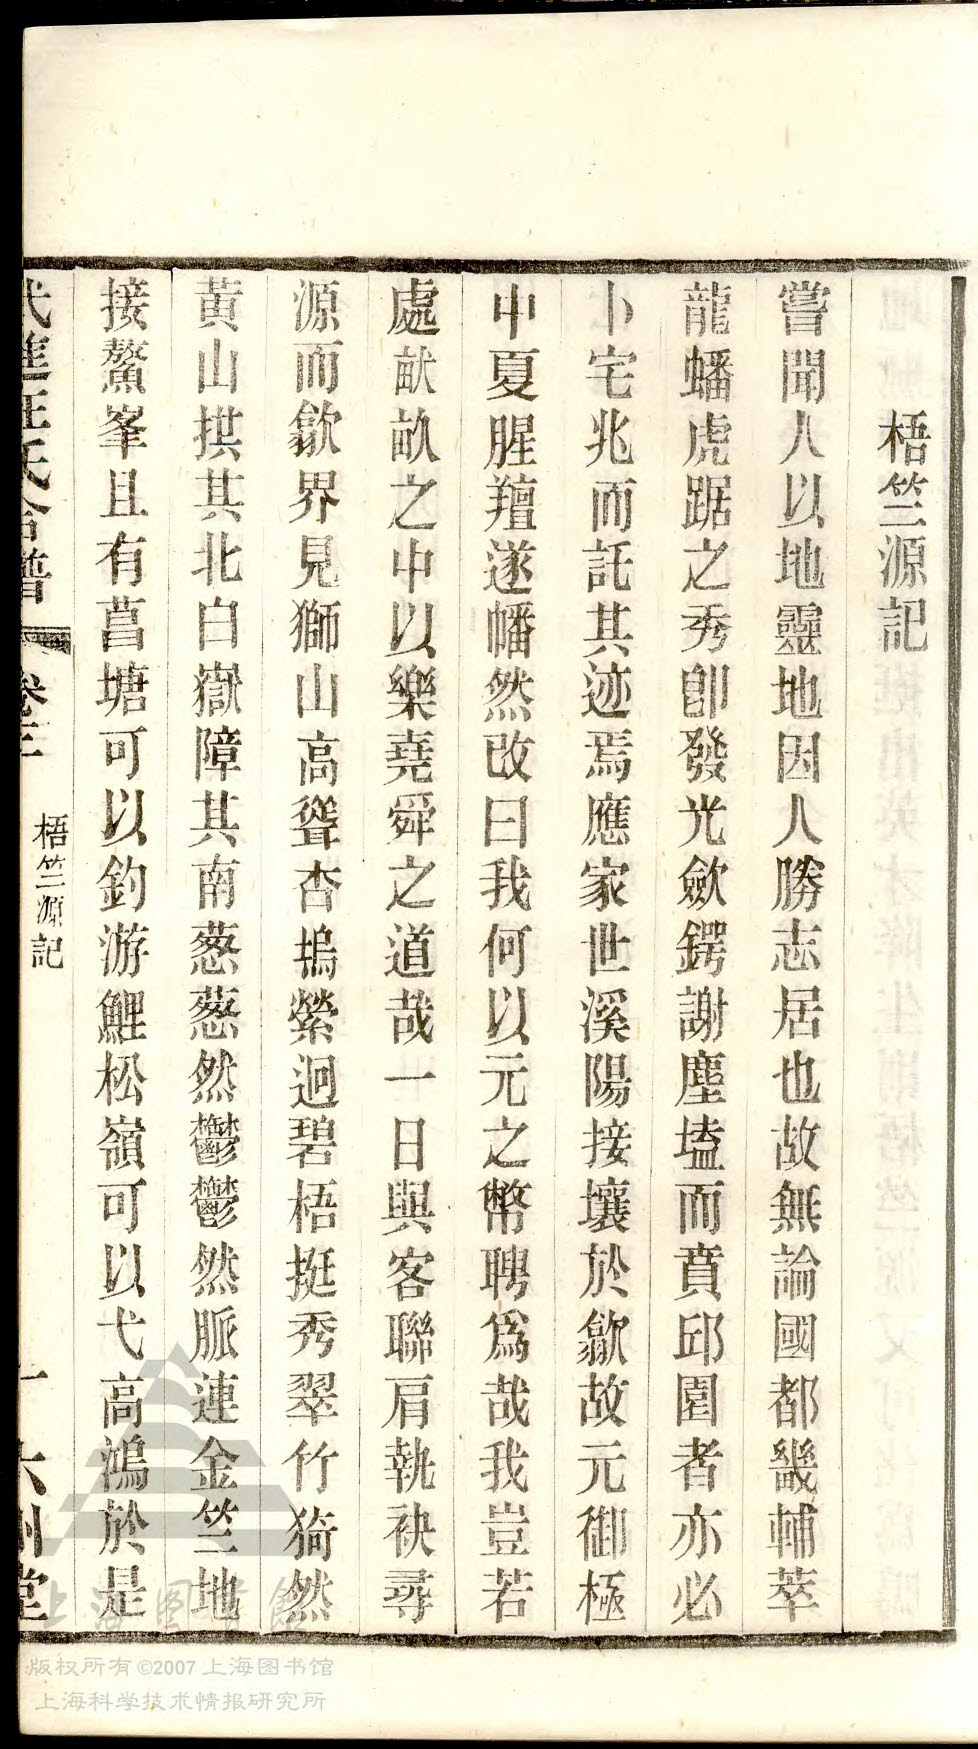 梧竺源記
嘗聞人以地靈地因人勝志居也故無論國都畿輔萃
龍蟠虎踞之秀卽發光歛鍔謝塵壒而賁邱園者亦必
卜宅兆而託其迹焉應家世溪陽接壤於歙故元御極
中夏腥羶遂幡然改曰我何以元之幣聘爲哉我豈若
處畎畝之中以樂堯舜之道哉一日與客聯肩執袂尋
源而歙界見獅山高聳杏塢縈迴碧梧挺秀翠竹猗然
黃山拱其北白嶽障其南葱葱然鬱鬱然脈連金竺地
接鰲峯且有菖塘可以釣游鯉松嶺可以弋高鴻於是
汪氏合譜 卷三 梧竺源記 六州堂
上海图书馆
版权所有©2007 上海图书馆
上海科学技术情报研究所